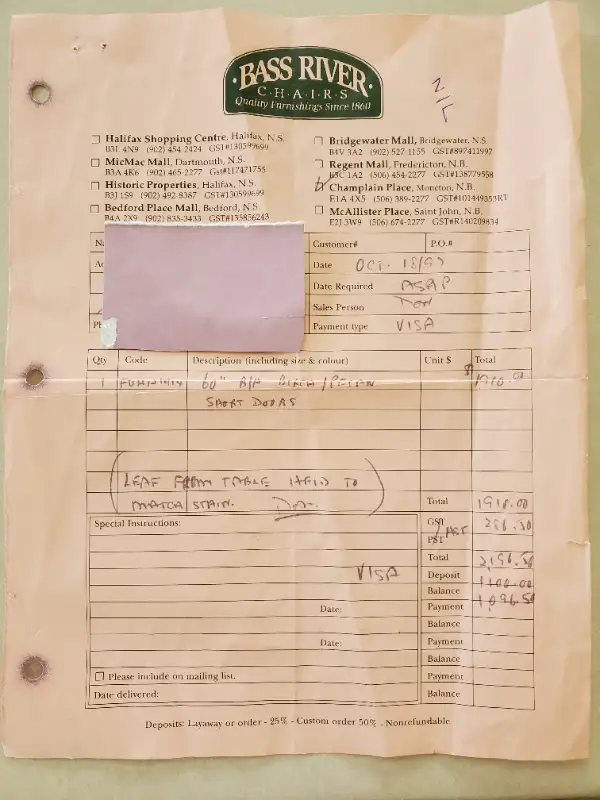 BASS RIVER
C·H·A·I·R·S
Quality Furnishings Since 1860
Halifax Shopping Centre, Halifax, N.S.
B3L 4N9 (902) 454-2424 GST#130599699
MicMac Mall, Dartmouth, N.S.
B3A 4K6 (902) 465-2277 Gst#117471755
Historic Properties, Halifax, N.S.
B3J 1S9 (902) 492-8387 GST#130599699
Bedford Place Mall, Bedford, N.S.
B4A 2X9 (902) 835-3433 GST#135856243
Bridgewater Mall, Bridgewater, N.S.
B4V 3A2 (902) 527-1155 GST#897411992
Regent Mall, Fredericton, N.B.
(506) 454-2277 GST#138779558
Champlain Place, Moncton, N.B.
E1A 4X5 (506) 389-2277 GST#101449353RT
McAllister Place, Saint John, N.B.
E2J 3W9 (506) 674-2277 GST#R140209834
Customer# P.O.#
Date OCT. 18/97
Date Required ASAP
Sales Person Don
Payment type VISA
Qty Code Description (including size & colour) Unit $ Total
1 60" BIRCH/ $1910.00
SPORT DOORS
(LEAF FROM TABLE HELD TO
MATCH STAIN. Don)
Total 1910.00
Special Instructions:
GST / PST 286.50
Total 2,196.50
VISA Deposit 1100.00
Balance 1,096.50
Date: Payment
Balance
Date: Payment
Balance
Please include on mailing list. Payment
Date delivered: Balance
Deposits: Layaway or order - 25% - Custom order 50% . Nonrefundable